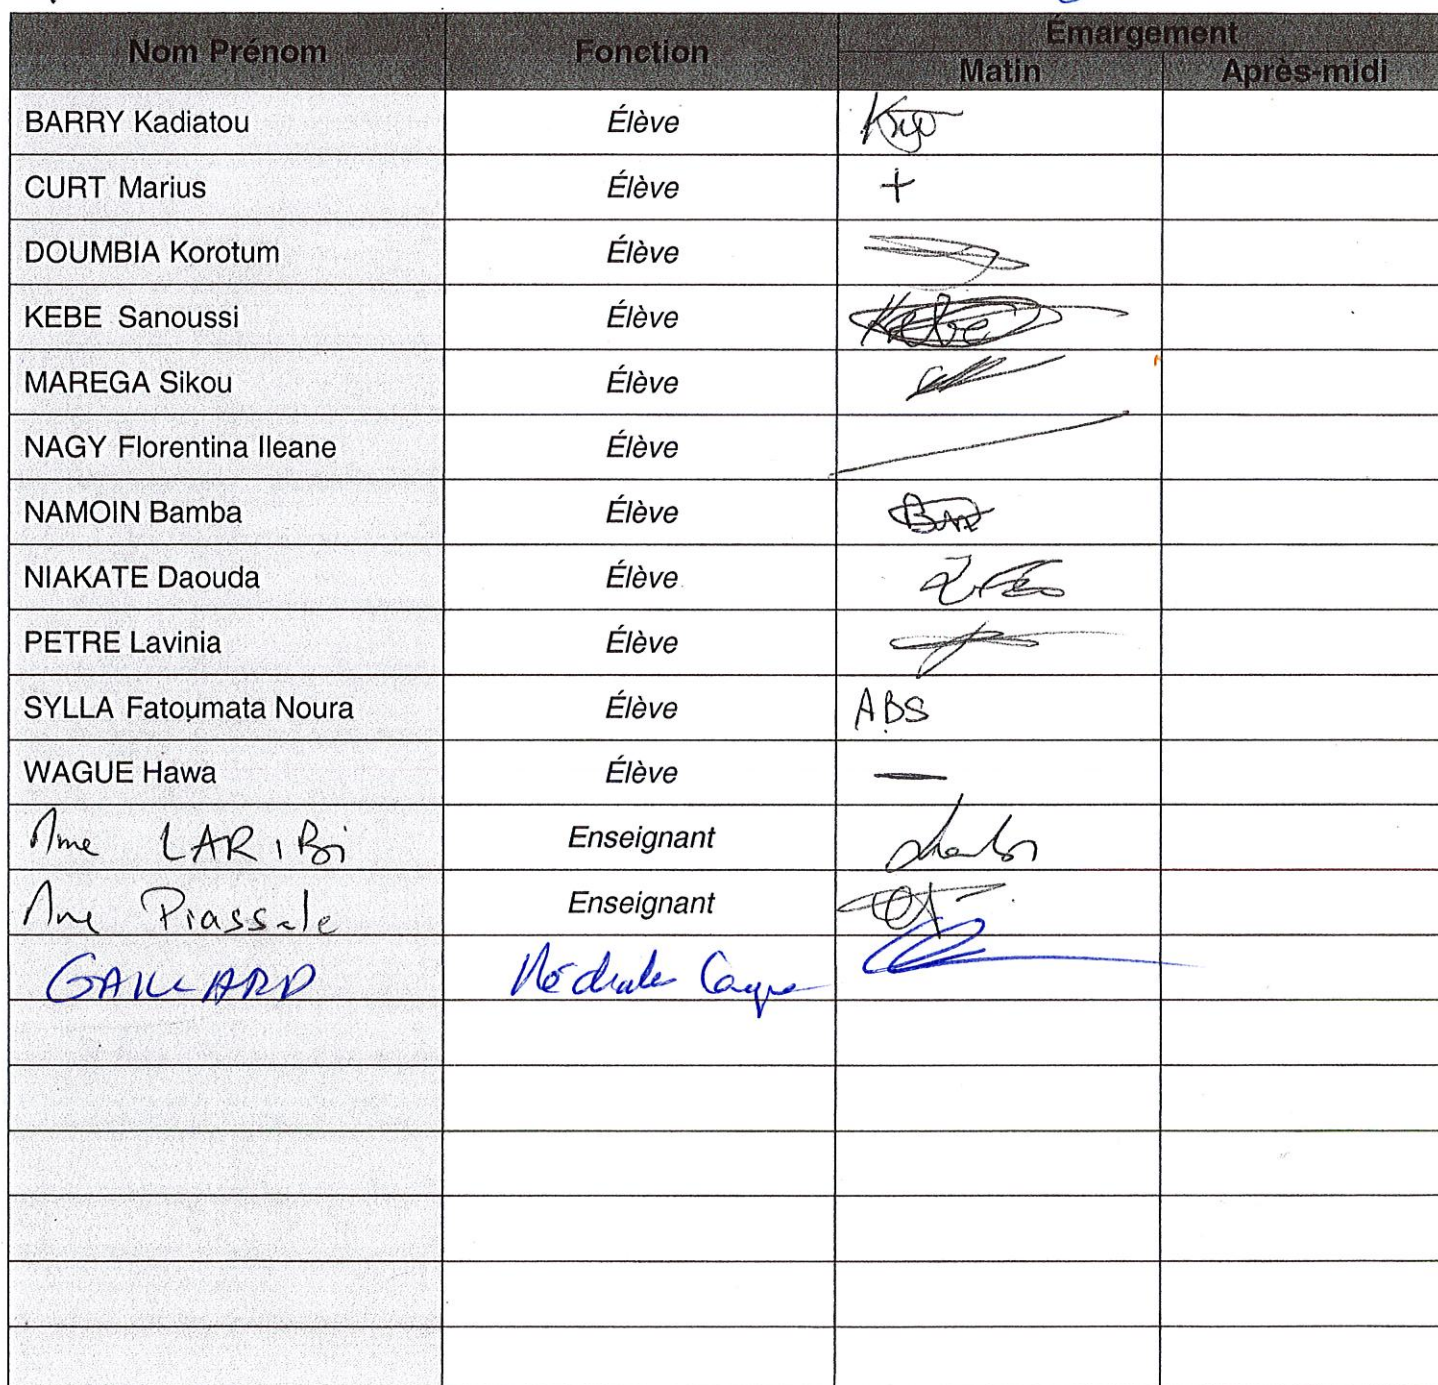 Nom Prénom Fonction Émargement
Matin Après-midi
BARRY Kadiatou Élève
CURT Marius Élève +
DOUMBIA Korotum Élève
KEBE Sanoussi Élève Kebe
MAREGA Sikou Élève
NAGY Florentina Ileane Élève
NAMOIN Bamba Élève
NIAKATE Daouda Élève
PETRE Lavinia Élève
SYLLA Fatoumata Noura Élève ABS
WAGUE Hawa Élève —
Mme LARIBi Enseignant
Mme Piassale Enseignant
GAILLARD